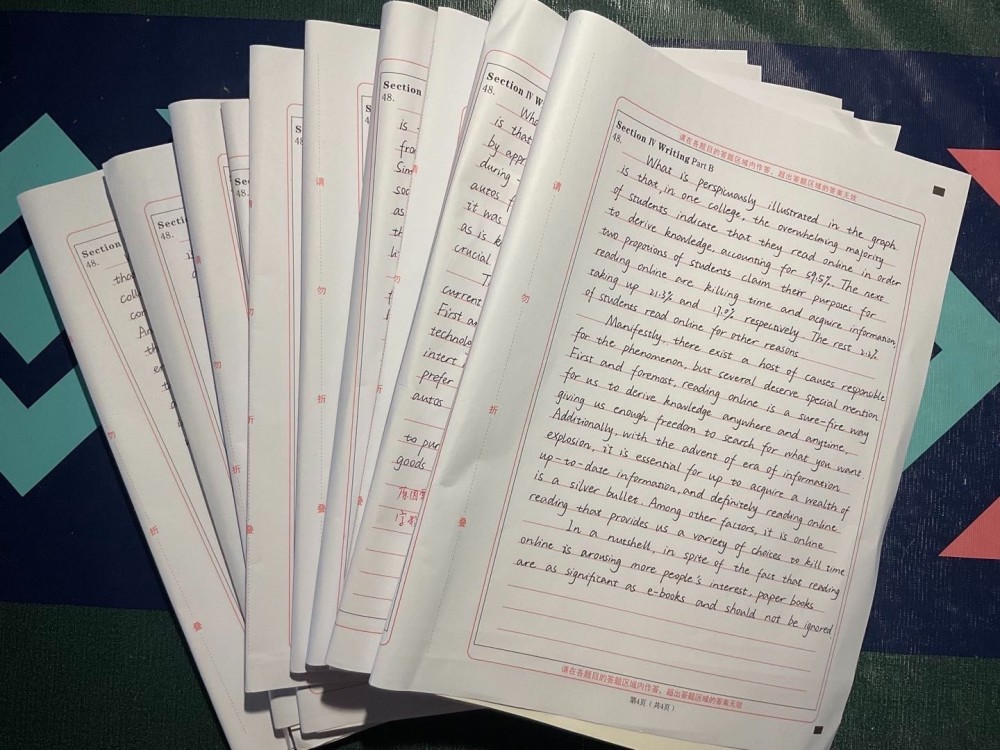 Section
48.
tha
Secti
48.
48.
Section
48.
is
fro
Sim
soc
as
th
Section IV W
48.
Who
is that
by appr
during
autos f
it was
as is k
crucial
T
current
First an
technolo
intert
prefer
autos
to pur
goods
请
勿
折
叠
请在各题目的答题区域内作答,超出答题区域的答案无效
Section IV Writing Part B
48.
What is perspicuously illustrated in the graph
is that, in one college, the overwhelming majority
of students indicate that they read online in order
to derive knowledge, accounting for 59.5%. The next
two propotions of students claim their purposes for
reading online are killing time and acquire information,
taking up 21.3% and 17.0% respectively. The rest 2.2%
of students read online for other reasons
Manifestly, there exist a host of causes responsible
for the phenomenon, but several deserve special mention.
First and foremost, reading online is a sure-fire way
for us to derive knowledge anywhere and anytime,
giving us enough freedom to search for what you want.
Additionally, with the advent of era of information
explosion, it is essential for up to acquire a wealth of
up-to-date information, and definitely reading online
is a silver bullet. Among other factors, it is online
reading that provides us a variety of choices to kill time
In a nutshell, in spite of the fact that reading
online is arousing more people's interest, paper books
are as significant as e-books and should not be ignored
请在各题目的答题区域内作答,超出答题区域的答案无效
第4页(共4页)